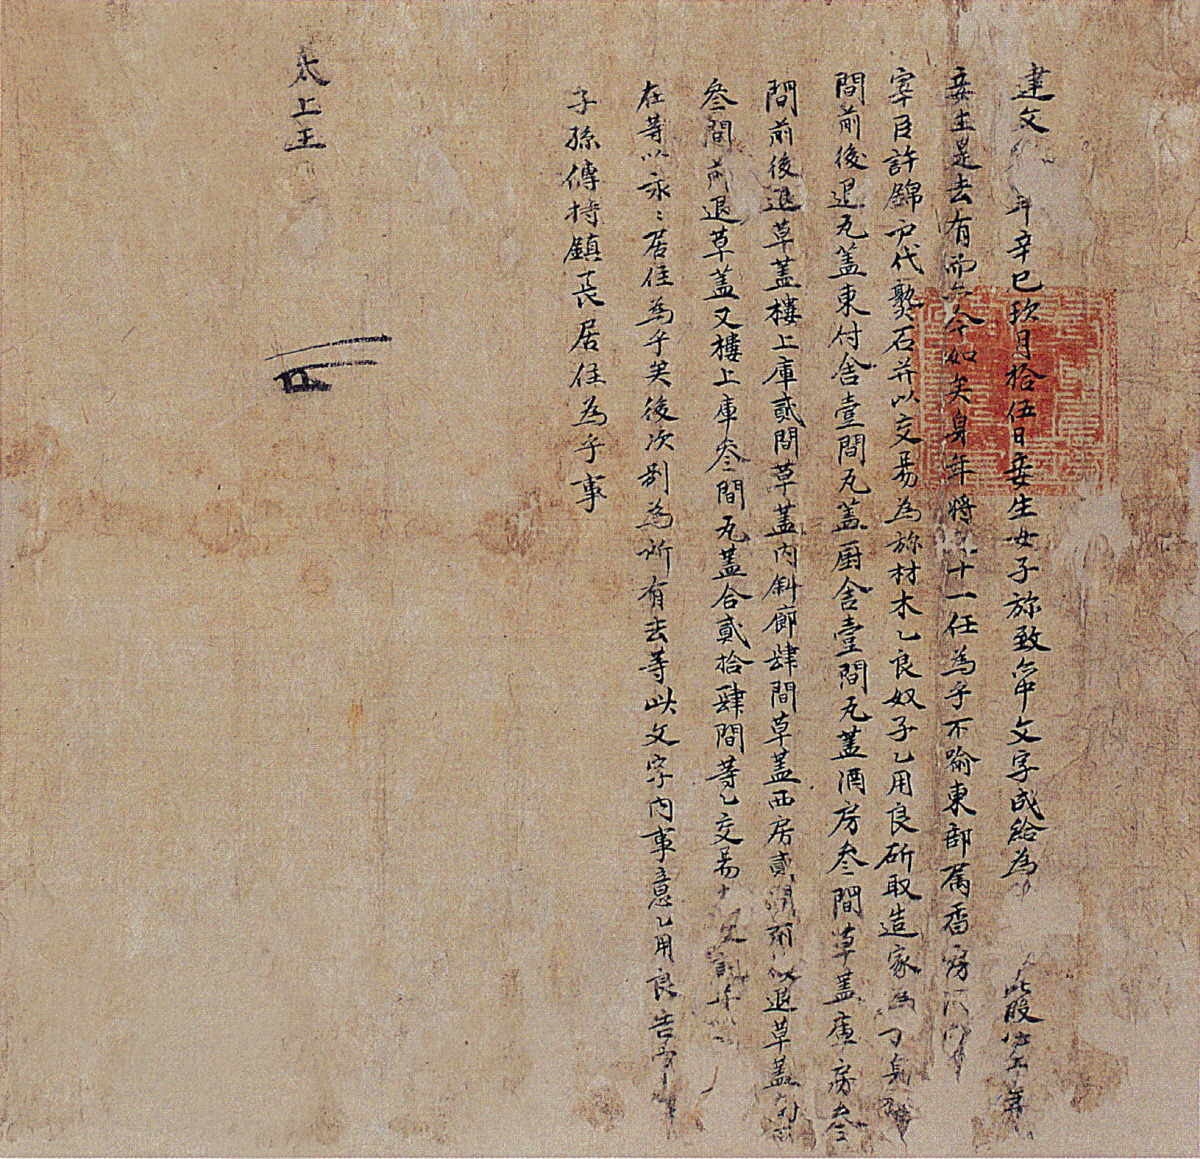 建文 年辛巳玖月拾伍日妾生女子旀致亦中文字成給為 此股
妾生是去有而亦今如矣身年將 十一任為乎不喻東部属香房
宰臣許錦戶代䂽石幷以交易為旀材木乙良奴子乙用良斫取造家 身
間前後退瓦盖東付舍壹間瓦盖厨舍壹間瓦盖酒房叄間草盖庫房叄
間前後退草盖樓上庫貳間草盖內斜廊肆間草盖西房貳間 退草盖
叄間前退草盖又樓上庫叄間瓦盖合貳拾肆間等乙交易
在等以永〻居住為乎矣後次別為所有去等此文字內事意乙用良告
子孫傳持鎮長居住為乎事
太上王